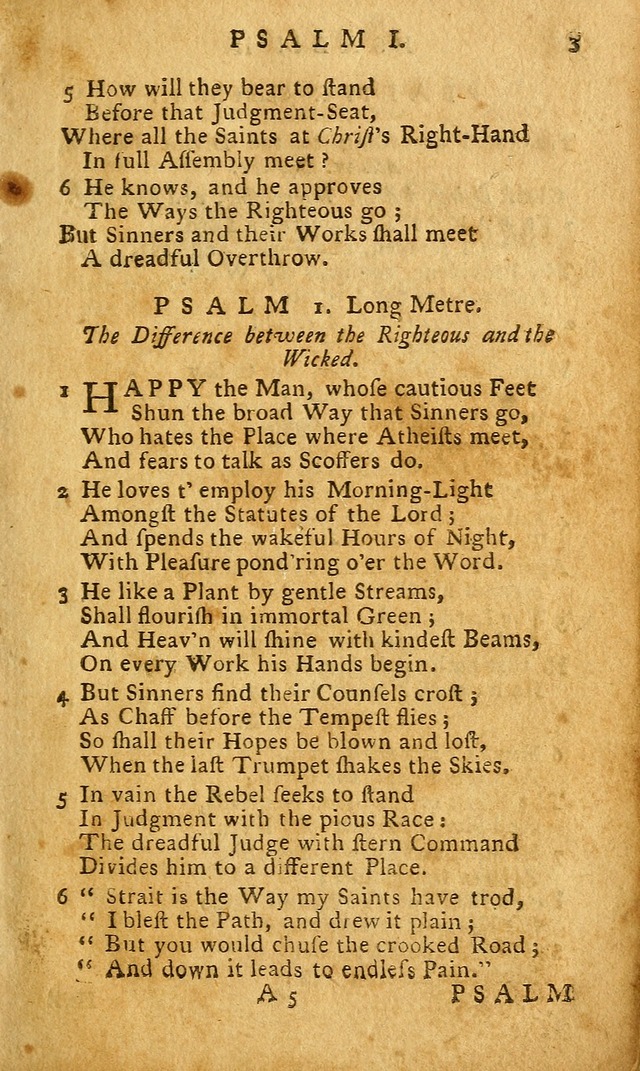 PSALM I. 3
5 How will they bear to ſtand
Before that Judgment-Seat,
Where all the Saints at Chriſt's Right-Hand
In full Aſſembly meet ?
6 He knows, and he approves
The Ways the Righteous go ;
But Sinners and their Works ſhall meet
A dreadful Overthrow.
PSALM 1. Long Metre.
The Difference between the Righteous and the
Wicked.
1 HAPPY the Man, whoſe cautious Feet
Shun the broad Way that Sinners go,
Who hates the Place where Atheiſts meet,
And fears to talk as Scoffers do.
2 He loves t' employ his Morning-Light
Amongſt the Statutes of the Lord ;
And ſpends the wakeful Hours of Night,
With Pleaſure pond'ring o'er the Word.
3 He like a Plant by gentle Streams,
Shall flouriſh in immortal Green ;
And Heav'n will ſhine with kindeſt Beams,
On every Work his Hands begin.
4 But Sinners find their Counſels croſt ;
As Chaff before the Tempeſt flies ;
So ſhall their Hopes be blown and loſt,
When the laſt Trumpet ſhakes the Skies.
5 In vain the Rebel ſeeks to ſtand
In Judgment with the pious Race :
The dreadful Judge with ſtern Command
Divides him to a different Place.
6 “ Strait is the Way my Saints have trod,
“ I bleſt the Path, and drew it plain ;
“ But you would chuſe the crooked Road ;
“ And down it leads to endleſs Pain.”
A 5 PSALM